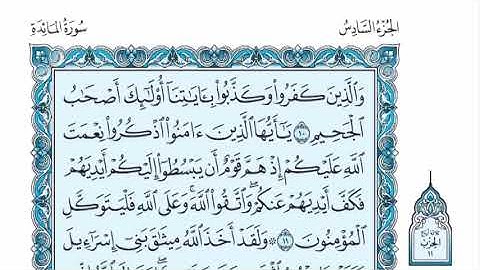 الجُزْءُ السَّادِسُ
سُورَةُ المَائِدَةِ
وَالَّذِينَ كَفَرُواْ وَكَذَّبُواْ بِـَٔايَٰتِنَآ أُوْلَٰٓئِكَ أَصْحَٰبُ
الْجَحِيمِ ١٠ يَٰٓأَيُّهَا الَّذِينَ ءَامَنُواْ اذْكُرُواْ نِعْمَتَ
اللَّهِ عَلَيْكُمْ إِذْ هَمَّ قَوْمٌ أَن يَبْسُطُوٓاْ إِلَيْكُمْ أَيْدِيَهُمْ
فَكَفَّ أَيْدِيَهُمْ عَنكُمْ ۖ وَاتَّقُواْ اللَّهَ ۚ وَعَلَى اللَّهِ فَلْيَتَوَكَّلِ
الْمُؤْمِنُونَ ١١ ۞ وَلَقَدْ أَخَذَ اللَّهُ مِيثَٰقَ بَنِىٓ إِسْرَٰٓءِيلَ
الحِزْب
١١